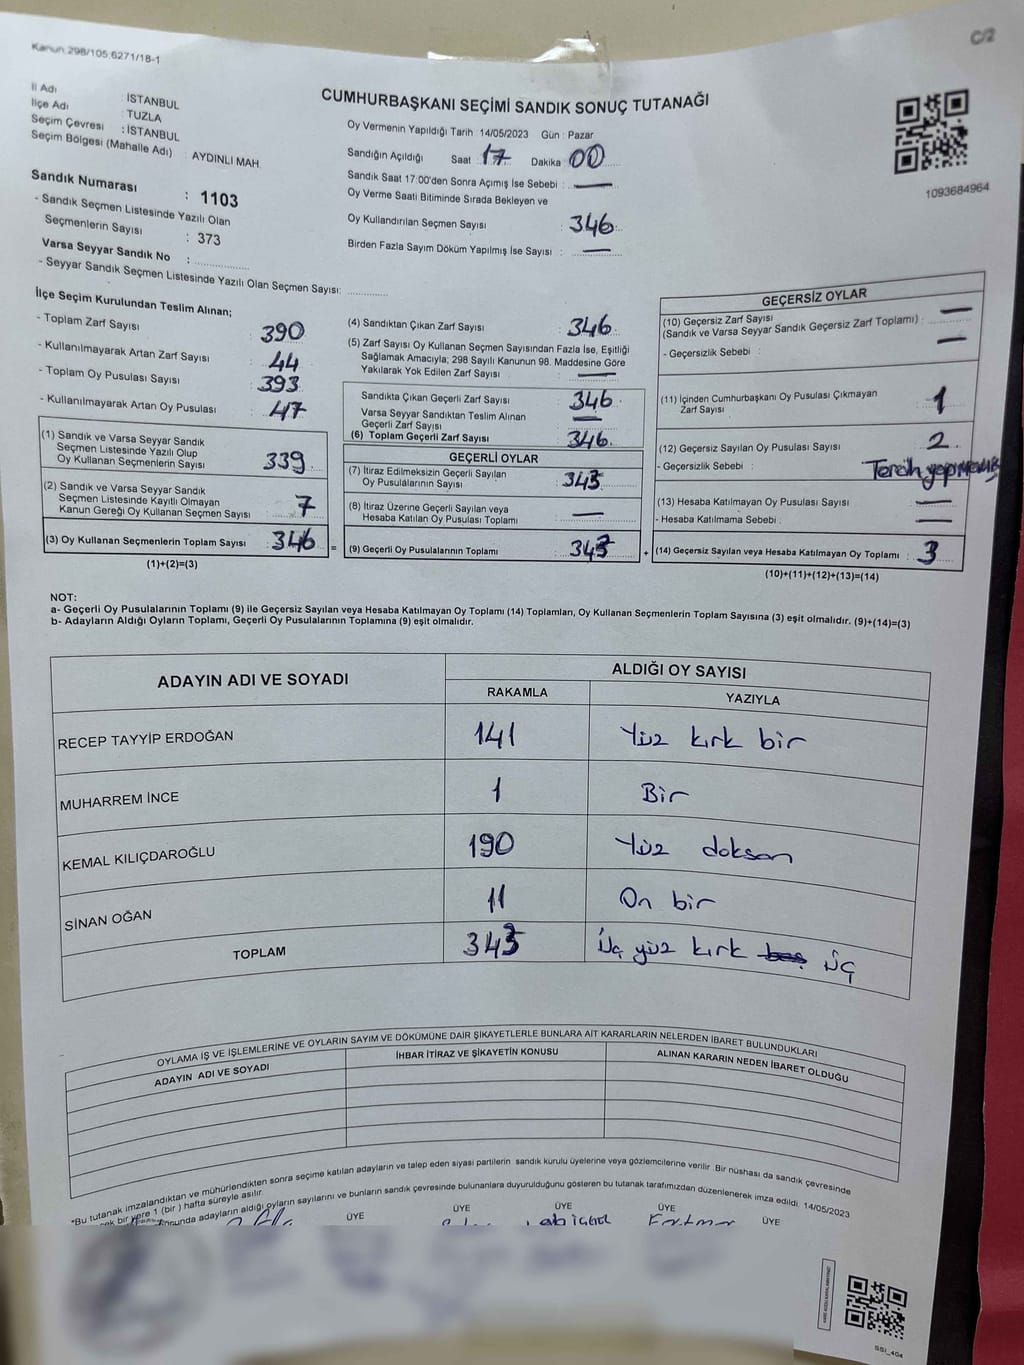 Kanun:298/105;6271/18-1
C/2
İl Adı : İSTANBUL
İlçe Adı : TUZLA
Seçim Çevresi : İSTANBUL
Seçim Bölgesi (Mahalle Adı) : AYDINLI MAH.
Sandık Numarası : 1103
- Sandık Seçmen Listesinde Yazılı Olan
Seçmenlerin Sayısı : 373
Varsa Seyyar Sandık No :
- Seyyar Sandık Seçmen Listesinde Yazılı Olan Seçmen Sayısı:
CUMHURBAŞKANI SEÇİMİ SANDIK SONUÇ TUTANAĞI
Oy Vermenin Yapıldığı Tarih :14/05/2023 Gün : Pazar
Sandığın Açıldığı Saat 17 Dakika 00
Sandık Saat 17:00'den Sonra Açımış İse Sebebi : —
Oy Verme Saati Bitiminde Sırada Bekleyen ve
Oy Kullandırılan Seçmen Sayısı : 346
Birden Fazla Sayım Döküm Yapılmış İse Sayısı : —
1093684964
İlçe Seçim Kurulundan Teslim Alınan;
- Toplam Zarf Sayısı : 390
- Kullanılmayarak Artan Zarf Sayısı : 44
- Toplam Oy Pusulası Sayısı : 393
- Kullanılmayarak Artan Oy Pusulası : 47
(1) Sandık ve Varsa Seyyar Sandık
Seçmen Listesinde Yazılı Olup
Oy Kullanan Seçmenlerin Sayısı : 339
(2) Sandık ve Varsa Seyyar Sandık
Seçmen Listesinde Kayıtlı Olmayan
Kanun Gereği Oy Kullanan Seçmen Sayısı : 7
(3) Oy Kullanan Seçmenlerin Toplam Sayısı : 346
(1)+(2)=(3)
(4) Sandıktan Çıkan Zarf Sayısı : 346
(5) Zarf Sayısı Oy Kullanan Seçmen Sayısından Fazla İse, Eşitliği
Sağlamak Amacıyla; 298 Sayılı Kanunun 98. Maddesine Göre
Yakılarak Yok Edilen Zarf Sayısı : —
Sandıkta Çıkan Geçerli Zarf Sayısı : 346
Varsa Seyyar Sandıktan Teslim Alınan
Geçerli Zarf Sayısı : —
(6) Toplam Geçerli Zarf Sayısı : 346
GEÇERLİ OYLAR
(7) İtiraz Edilmeksizin Geçerli Sayılan
Oy Pusulalarının Sayısı : 343
(8) İtiraz Üzerine Geçerli Sayılan veya
Hesaba Katılan Oy Pusulası Toplamı : —
(9) Geçerli Oy Pusulalarının Toplamı : 343
GEÇERSİZ OYLAR
(10) Geçersiz Zarf Sayısı : —
(Sandık ve Varsa Seyyar Sandık Geçersiz Zarf Toplamı) :
- Geçersizlik Sebebi : —
(11) İçinden Cumhurbaşkanı Oy Pusulası Çıkmayan
Zarf Sayısı : 1
(12) Geçersiz Sayılan Oy Pusulası Sayısı : 2
- Geçersizlik Sebebi : Tercih yapmamış
(13) Hesaba Katılmayan Oy Pusulası Sayısı : —
- Hesaba Katılmama Sebebi : —
(14) Geçersiz Sayılan veya Hesaba Katılmayan Oy Toplamı : 3
(10)+(11)+(12)+(13)=(14)
NOT:
a- Geçerli Oy Pusulalarının Toplamı (9) ile Geçersiz Sayılan veya Hesaba Katılmayan Oy Toplamı (14) Toplamları, Oy Kullanan Seçmenlerin Toplam Sayısına (3) eşit olmalıdır. (9)+(14)=(3)
b- Adayların Aldığı Oyların Toplamı, Geçerli Oy Pusulalarının Toplamına (9) eşit olmalıdır.
ADAYIN ADI VE SOYADI
ALDIĞI OY SAYISI
RAKAMLA YAZIYLA
RECEP TAYYİP ERDOĞAN 141 Yüz kırk bir
MUHARREM İNCE 1 Bir
KEMAL KILIÇDAROĞLU 190 Yüz doksan
SİNAN OĞAN 11 On bir
TOPLAM 343 Üç yüz kırk beş üç
OYLAMA İŞ VE İŞLEMLERİNE VE OYLARIN SAYIM VE DÖKÜMÜNE DAİR ŞİKAYETLERLE BUNLARA AİT KARARLARIN NELERDEN İBARET BULUNDUKLARI
ADAYIN ADI VE SOYADI İHBAR İTİRAZ VE ŞİKAYETİN KONUSU ALINAN KARARIN NEDEN İBARET OLDUĞU
*Bu tutanak imzalandıktan ve mühürlendikten sonra seçime katılan adayların ve talep eden siyasi partilerin sandık kurulu üyelerine veya gözlemcilerine verilir. Bir nüshası da sandık çevresinde
bir yere 1 (bir) hafta süreyle asılır.
adayların aldığı oyların sayılarını ve bunların sandık çevresinde bulunanlara duyurulduğunu gösteren bu tutanak tarafımızdan düzenlenerek imza edildi. 14/05/2023
ÜYE ÜYE ÜYE ÜYE
SSI_404